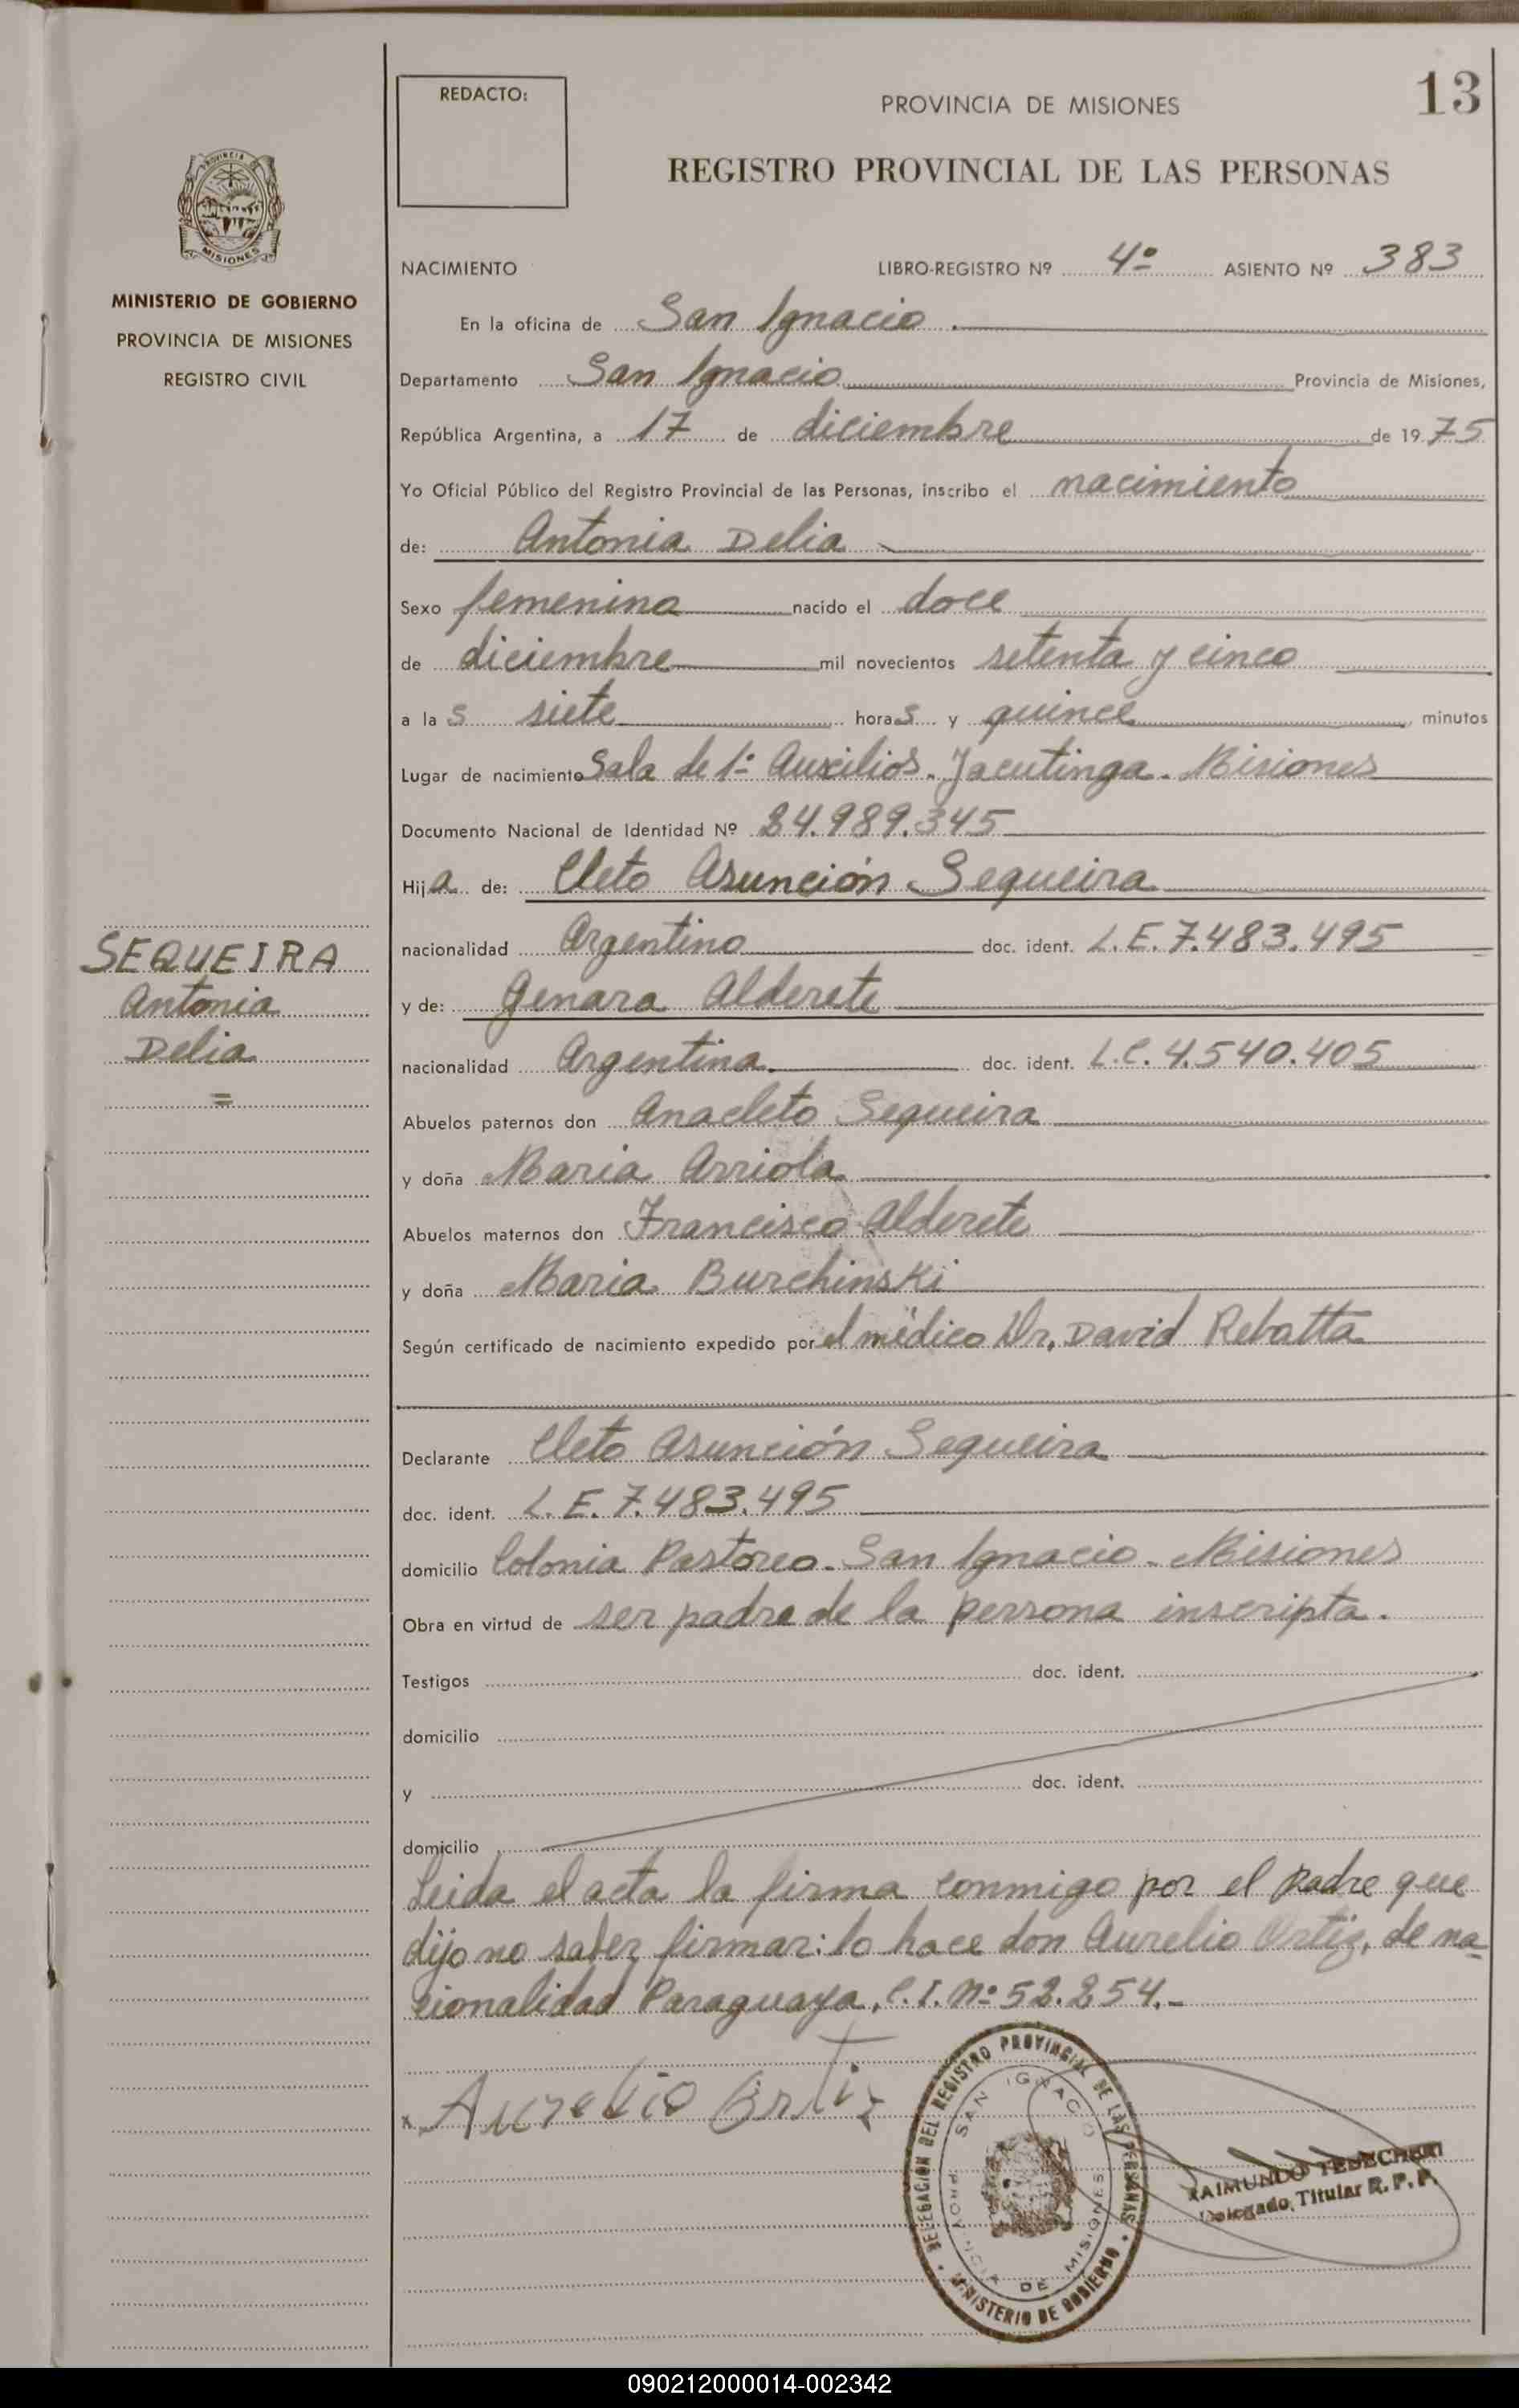 13
REDACTO:
PROVINCIA DE MISIONES
REGISTRO PROVINCIAL DE LAS PERSONAS
PROVINCIA DE
MISIONES
MINISTERIO DE GOBIERNO
PROVINCIA DE MISIONES
REGISTRO CIVIL
NACIMIENTO LIBRO-REGISTRO Nº 4º ASIENTO Nº 383
En la oficina de San Ignacio.
Departamento San Ignacio Provincia de Misiones,
República Argentina, a 17 de diciembre de 1975
Yo Oficial Público del Registro Provincial de las Personas, inscribo el nacimiento
de: Antonia Delia
Sexo femenino nacido el doce
de diciembre mil novecientos setenta y cinco
a las siete horas y quince minutos
Lugar de nacimiento Sala de 1º Auxilios. Jacutinga. Misiones
Documento Nacional de Identidad Nº 24.989.345
Hija de: Cleto Asunción Sequeira
nacionalidad Argentino doc. ident. L.E. 7.483.495
y de: Genara Alderete
nacionalidad Argentina. doc. ident. L.C. 4.540.405
Abuelos paternos don Anacleto Sequeira
y doña Maria Arriola
Abuelos maternos don Francisco Alderete
y doña Maria Burchinski
Según certificado de nacimiento expedido por el médico Dr. David Rebatta
Declarante Cleto Asunción Sequeira
doc. ident. L.E. 7.483.495
domicilio Colonia Pastoreo. San Ignacio. Misiones
Obra en virtud de ser padre de la persona inscripta.
Testigos doc. ident.
domicilio
y doc. ident.
domicilio
Leida el acta la firma conmigo por el padre que
dijo no saber firmar: lo hace don Aurelio Ortiz, de na-
cionalidad Paraguaya, C.I. Nº 52.254.-
x Aurelio Ortiz
SEQUEIRA
Antonia
Delia
=
DELEGACION DEL REGISTRO PROVINCIAL DE LAS PERSONAS
MINISTERIO DE GOBIERNO
SAN IGNACIO
PROVINCIA DE MISIONES
RAIMUNDO
Delegado Titular R. P. P.
090212000014-002342